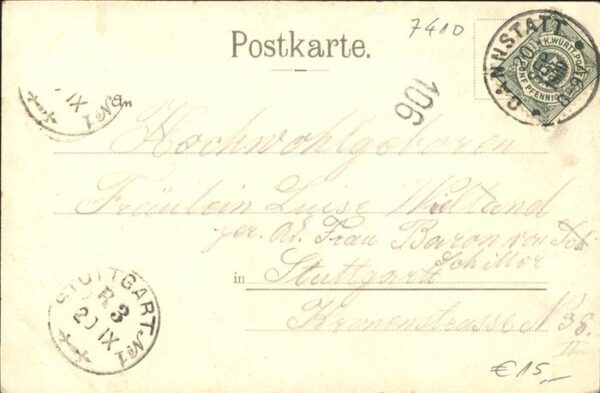 7410
Postkarte.
CANNSTATT
20
K. WÜRTT. POST
FÜNF PFENNIG
106
IX
No 1
An
Hochwohlgeboren
Fräulein Luise
per. Ad. Frau Baron von
Schiller
in Stuttgart
Kronenstrasse N 38
II
STUTTGART No 1
R. 3
20 IX
€ 15,-